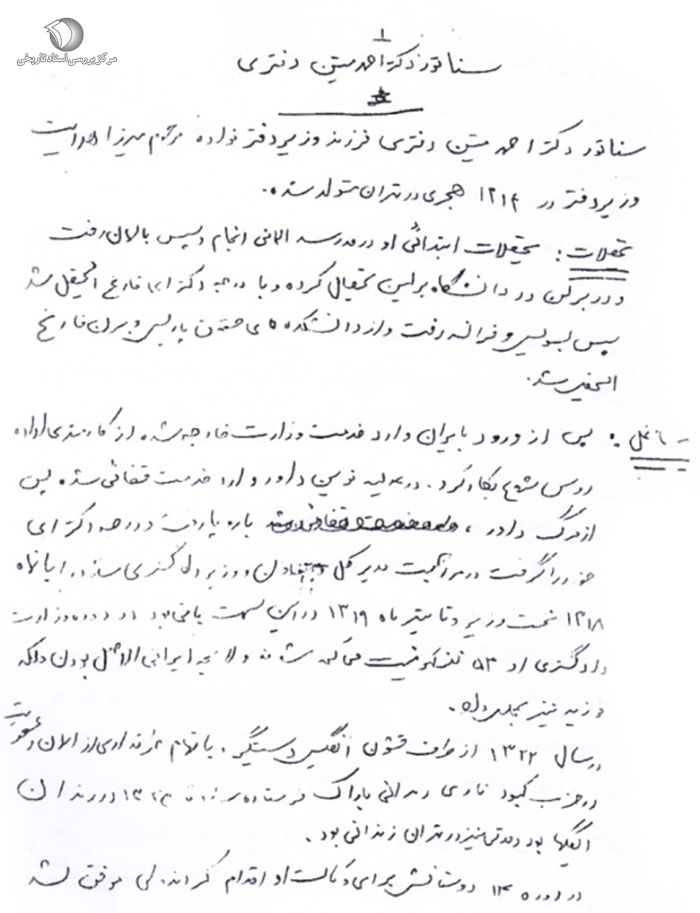 مرکز بررسی اسناد تاریخی
۱
سناتور دکتر احمد متین دفتری
سناتور دکتر احمد متین دفتری فرزند وزیر دفتر نواده مرحوم میرزا هدایت
وزیر دفتر در ۱۲۱۴ هجری در تهران متولد شده.
تحصیلات: تحصیلات ابتدائی او در مدرسه المانی انجام و سپس بالمان رفت
و در برلن در دانشگاه برلین تحصیل کرده و با درجه دکترا فارغ التحصیل شد
سپس بسویس و فرانسه رفت و از دانشکده های حقوق پاریس و برن فارغ
التحصیل شد.
مشاغل: پس از ورود بایران وارد خدمت وزارت خارجه شده از کارمندی اداره
روس شروع بکار کرد. در عدلیه نوین داور وارد خدمت قضائی شده پس
از مرگ داور، با رو پا رفت و درجه دکترای
خود را گرفت در مراجعت مدیر کل و وزیر دادگستری شد در ابانماه
۱۳۱۸ نخست وزیر و تا تیر ماه ۱۳۱۹ در این سمت باقی بود در دوره وزارت
دادگستری او ۵۳ نفر کمونیست محاکمه شدند و لایحه ایرانی الاصل بودن ملکه
فوزیه نیز بمجلس داد.
در سال ۱۳۲۲ از طرف قشون انگلیس دستگیر، باتهام طرفداری از المان و عضویت
در حزب کبود نازی زندانی باراک فرستاده شد تا ۱۳۲۴ در زندان
انگلیسها بود و مدتی نیز در تهران زندانی بود.
در دوره ۱۴ دوستانش برای وکالت او اقدام کردند ولی موفق نشد